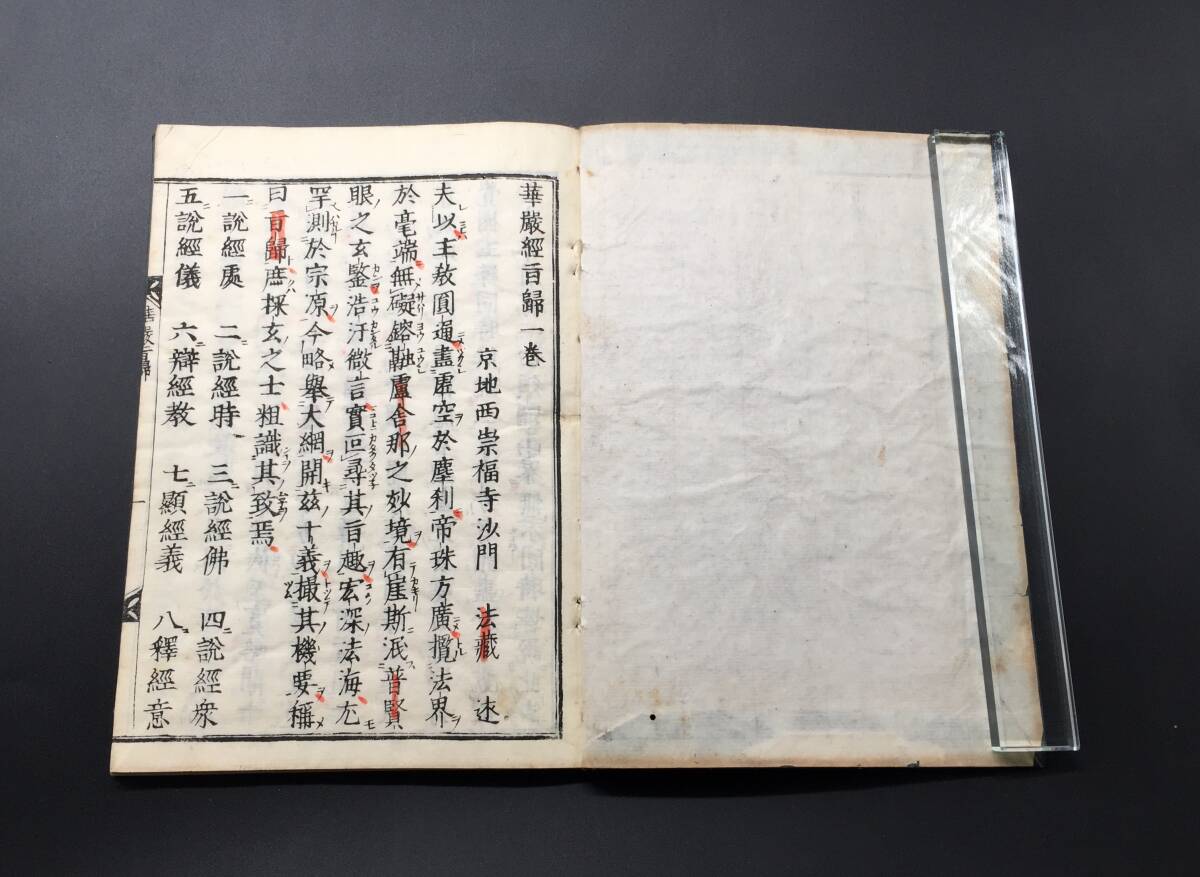 華嚴經㫖歸一卷
京地西崇福寺沙門 法藏 述
夫以主教圓通盡虛空於塵刹帝珠方廣攬法界
於毫端無礙鎔融盧舍那之妙境有崖斯泯普賢
眼之玄鑒浩汗微言實叵尋其㫖趣宏深法海尤
罕測於宗原今略舉大綱開茲十義撮其機要稱
曰㫖歸庶探玄之士粗識其致焉
一說經處 二說經時 三說經佛 四說經衆
五說經儀 六辯經教 七顯經義 八釋經意
華嚴㫖歸
一